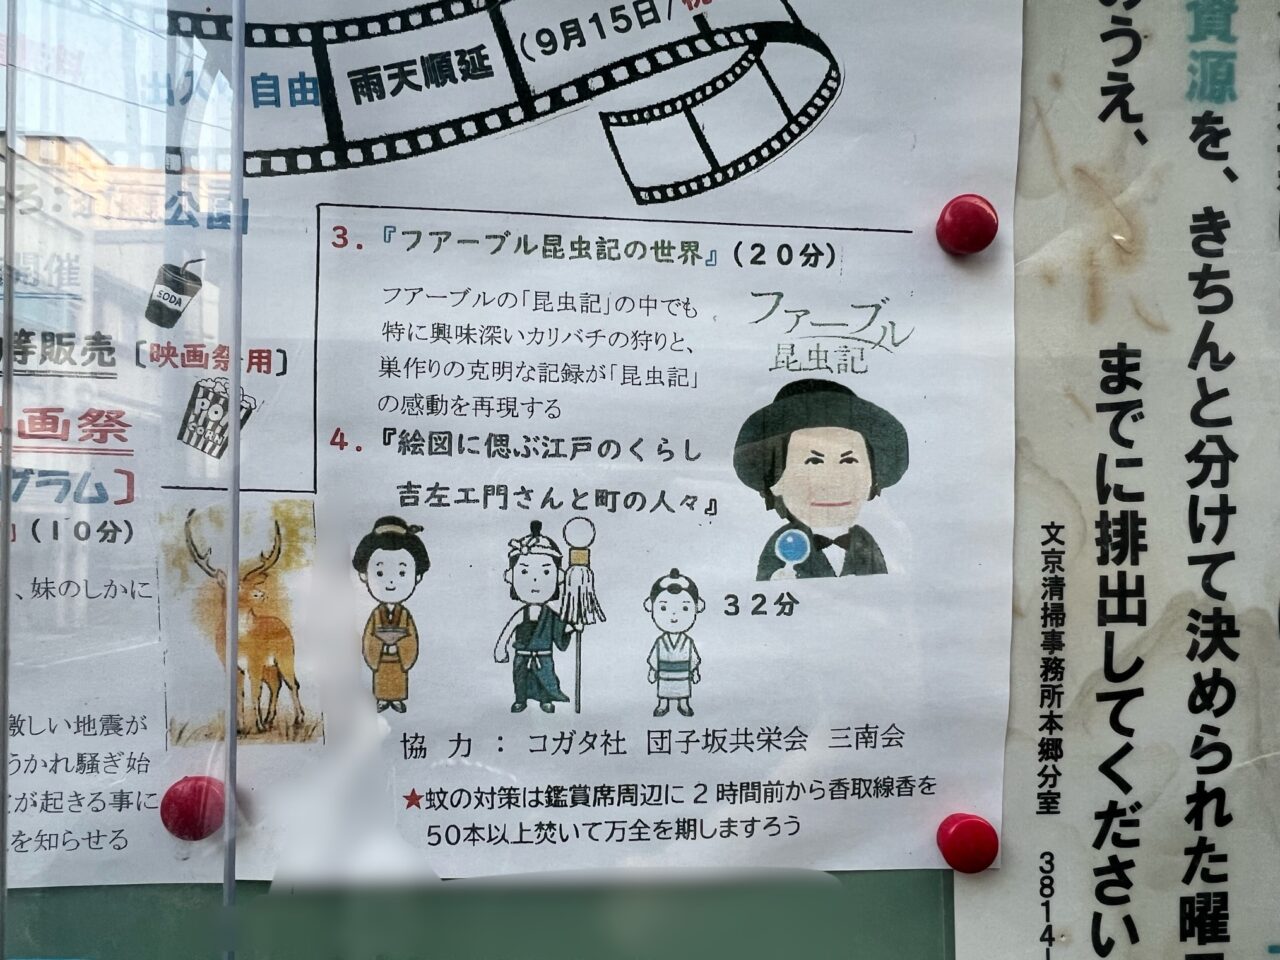 出入 自由
雨天順延
(9月15日/祝
公園
開催
等販売 [映画祭用]
SODA
POP
CORN
画祭
グラム]
(10分)
、妹のしかに
激しい地震が
うかれ騒ぎ始
が起きる事に
を知らせる
3.『フアーブル昆虫記の世界』(20分)
フアーブルの「昆虫記」の中でも
特に興味深いカリバチの狩りと、
巣作りの克明な記録が「昆虫記」
の感動を再現する
ファーブル
昆虫記
4.『絵図に偲ぶ江戸のくらし
吉左エ門さんと町の人々』
32分
協 力 : コガタ社 団子坂共栄会 三南会
★蚊の対策は鑑賞席周辺に2時間前から香取線香を
50本以上焚いて万全を期しますろう
資源を、きちんと分けて決められた曜
のうえ、 までに排出してください
文京清掃事務所本郷分室 3814-